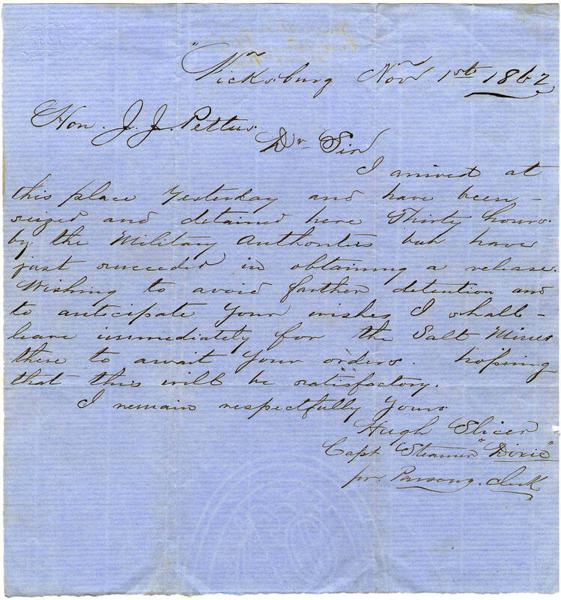 Vicksburg Nov 1st 1862
Hon. J. J. Pettus
Dr Sir
I arrived at
this place Yesterday and have been
seized and detained here Thirty hours
by the Military Authorities but have
just succeeded in obtaining a release.
Wishing to avoid farther detention and
to anticipate Your wishes I shall
leave immediately for the Salt Mines
there to await Your orders. hopeing
that this will be satisfactory.
I remain respectfully Yours
Hugh Slicer
Capt Steamer "Dixie"
pr. Parsons. Clerk